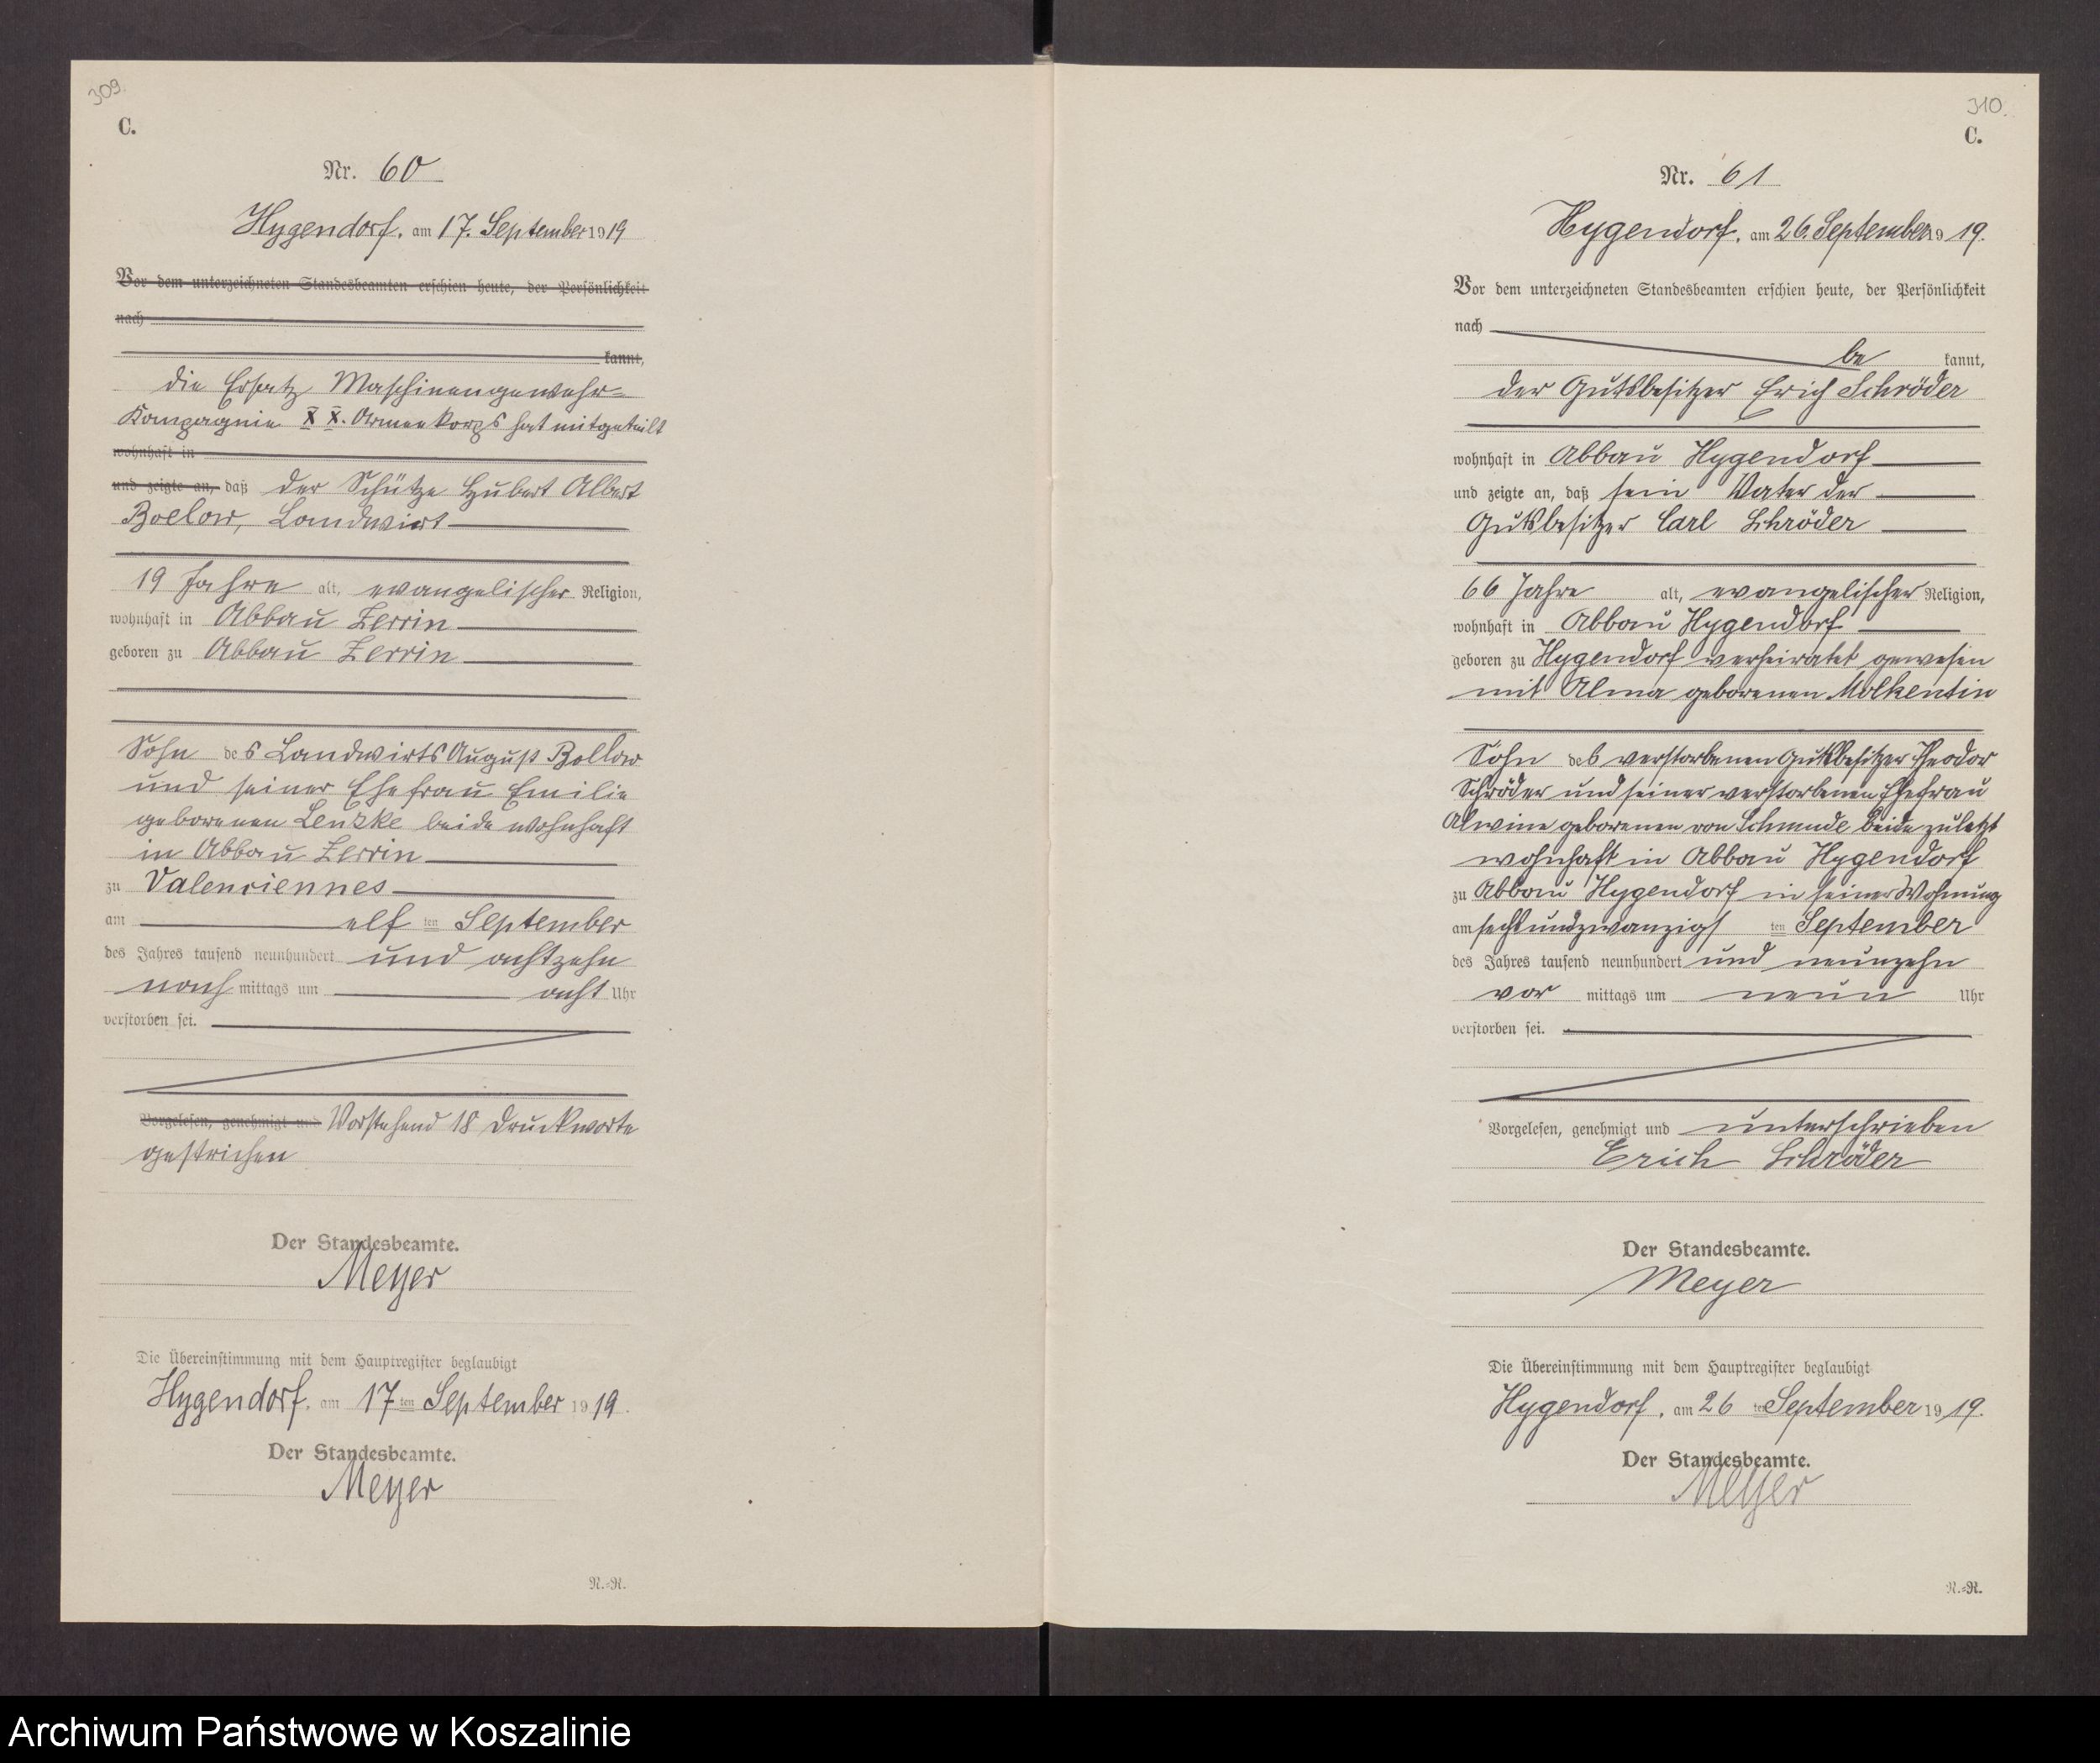 309.
C.
Nr. 60
Hygendorf, am 17. September 1919
Vor dem unterzeichneten Standesbeamten erschien heute, der Persönlichkeit
nach
kannt,
die Ersatz Maschinengewehr-
Kompagnie XX. Armeekorps hat mitgeteilt
wohnhaft in
und zeigte an, daß der Schütze Hubert Albert
Boelow, Landwirt
19 Jahre alt, evangelischer Religion,
wohnhaft in Abbau Zerrin
geboren zu Abbau Zerrin
Sohn des Landwirts August Bollow
und seiner Ehefrau Emilie
geborenen Lenzke beide wohnhaft
in Abbau Zerrin
zu Valenciennes
am elf ten September
des Jahres tausend neunhundert und achtzehn
nach mittags um acht Uhr
verstorben sei.
Vorgelesen, genehmigt und Vorstehend 18 Druckworte
gestrichen
Der Standesbeamte.
Meyer
Die Übereinstimmung mit dem Hauptregister beglaubigt
Hygendorf, am 17 ten September 1919.
Der Standesbeamte.
Meyer
N.=R.
310.
C.
Nr. 61
Hygendorf, am 26. September 1919.
Vor dem unterzeichneten Standesbeamten erschien heute, der Persönlichkeit
nach
be kannt,
der Gutsbesitzer Erich Schröder
wohnhaft in Abbau Hygendorf
und zeigte an, daß sein Vater der
Gutsbesitzer Carl Schröder
66 Jahre alt, evangelischer Religion,
wohnhaft in Abbau Hygendorf
geboren zu Hygendorf verheiratet gewesen
mit Alma geborenen Molkentin
Sohn des verstorbenen Gutsbesitzer Theodor
Schröder und seiner verstorbenen Ehefrau
Alwine geborenen von Schmude beide zuletzt
wohnhaft in Abbau Hygendorf
zu Abbau Hygendorf in seiner Wohnung
am sechsundzwanzigs ten September
des Jahres tausend neunhundert und neunzehn
vor mittags um neun Uhr
verstorben sei.
Vorgelesen, genehmigt und unterschrieben
Erich Schröder
Der Standesbeamte.
Meyer
Die Übereinstimmung mit dem Hauptregister beglaubigt
Hygendorf, am 26 ten September 1919.
Der Standesbeamte.
Meyer
N.=R.
Archiwum Państwowe w Koszalinie